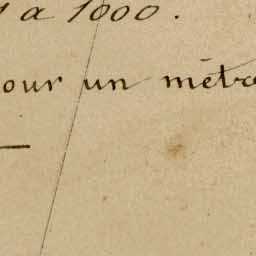 à 1000.
pour un mètre